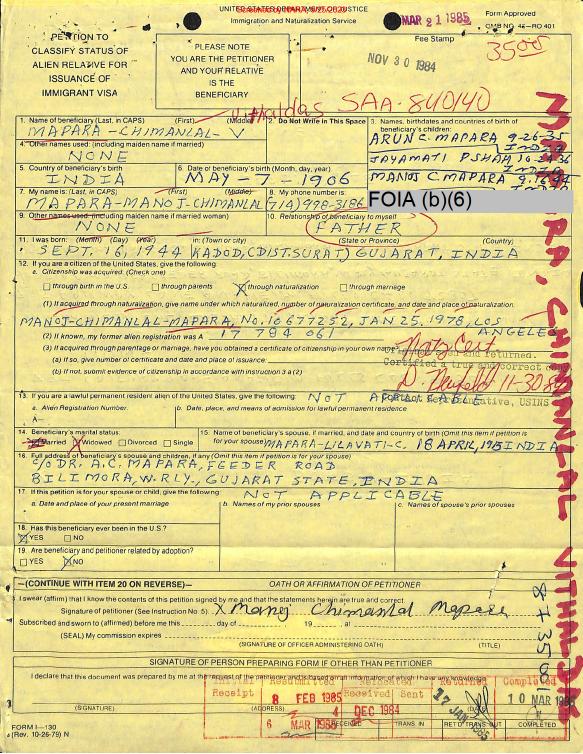 UNITED STATES DEPARTMENT OF JUSTICE
Immigration and Naturalization Service
MAR 21 1985
Form Approved
OMB NO. 43-RO 401
PETITION TO
CLASSIFY STATUS OF
ALIEN RELATIVE FOR
ISSUANCE OF
IMMIGRANT VISA
PLEASE NOTE
YOU ARE THE PETITIONER
AND YOUR RELATIVE
IS THE
BENEFICIARY
Fee Stamp
35.00
NOV 30 1984
Vithaldas SAA-840140
1. Name of beneficiary (Last, in CAPS) (First) (Middle)
MAPARA - CHIMANLAL - V
2. Do Not Write in This Space
3. Names, birthdates and countries of birth of beneficiary's children:
ARUN C. MAPARA 9-26-35
INDIA
JAYAMATI P. SHAH, 10-24-36
INDIA
MANOJ C. MAPARA 9.16.44
4. Other names used: (including maiden name if married)
NONE
5. Country of beneficiary's birth
INDIA
6. Date of beneficiary's birth (Month, day, year)
MAY - 7 - 1906
7. My name is: (Last, in CAPS) (First) (Middle)
MAPARA-MANOJ-CHIMANLAL
8. My phone number is:
714) 998-3186
FOIA (b)(6)
9. Other names used: (including maiden name if married woman)
NONE
10. Relationship of beneficiary to myself
FATHER
11. I was born: (Month) (Day) (Year) in: (Town or city) (State or Province) (Country)
SEPT. 16, 1944 KADOD, (DIST. SURAT) GUJARAT, INDIA
12. If you are a citizen of the United States, give the following:
a. Citizenship was acquired: (Check one)
through birth in the U.S. through parents X through naturalization through marriage
(1) If acquired through naturalization, give name under which naturalized, number of naturalization certificate, and date and place of naturalization.
MANOJ-CHIMANLAL-MAPARA, No. 10677252, JAN 25, 1978, LOS ANGELES
(2) If known, my former alien registration was A 17 794 061
(3) If acquired through parentage or marriage, have you obtained a certificate of citizenship in your own name
(a) If so, give number of certificate and date and place of issuance:
(b) If not, submit evidence of citizenship in accordance with instruction 3 a (2)
Natz Cert
seen and returned.
Certified a true and correct copy
11-30-84
Representative, USINS
13. If you are a lawful permanent resident alien of the United States, give the following: NOT APPLICABLE
a. Alien Registration Number:
b. Date, place, and means of admission for lawful permanent residence
A—
14. Beneficiary's marital status:
Married X Widowed Divorced Single
15. Name of beneficiary's spouse, if married, and date and country of birth (Omit this item if petition is for your spouse)
MAPARA-LILAVATI-C. 18 APRIL, 1915 INDIA
16. Full address of beneficiary's spouse and children, if any (Omit this item if petition is for your spouse)
C/O DR. A.C. MAPARA, FEEDER ROAD
BILIMORA, W.RLY., GUJARAT STATE, INDIA
17. If this petition is for your spouse or child, give the following: NOT APPLICABLE
a. Date and place of your present marriage
b. Names of my prior spouses
c. Names of spouse's prior spouses
18. Has this beneficiary ever been in the U.S.?
X YES NO
19. Are beneficiary and petitioner related by adoption?
YES X NO
—(CONTINUE WITH ITEM 20 ON REVERSE)—
OATH OR AFFIRMATION OF PETITIONER
I swear (affirm) that I know the contents of this petition signed by me and that the statements herein are true and correct.
Signature of petitioner (See Instruction No. 5) X Manoj Chimanlal Mapara
Subscribed and sworn to (affirmed) before me this day of 19 , at
(SEAL) My commission expires
(SIGNATURE OF OFFICER ADMINISTERING OATH) (TITLE)
SIGNATURE OF PERSON PREPARING FORM IF OTHER THAN PETITIONER
I declare that this document was prepared by me at the request of the petitioner and is based on all information of which I have any knowledge
(SIGNATURE) (ADDRESS)
Receipt
Resubmitted
Relocated
Received Sent
Returned
Completed
8 FEB 1985
4 DEC 1984
17 JAN 1985
10 MAR
6 MAR 1985
RECEIVED
TRANS. IN
RET'D TRANS. OUT
COMPLETED
FORM I—130
(Rev. 10-26-79) N
MAPARA, CHIMANLAL VITHALDAS